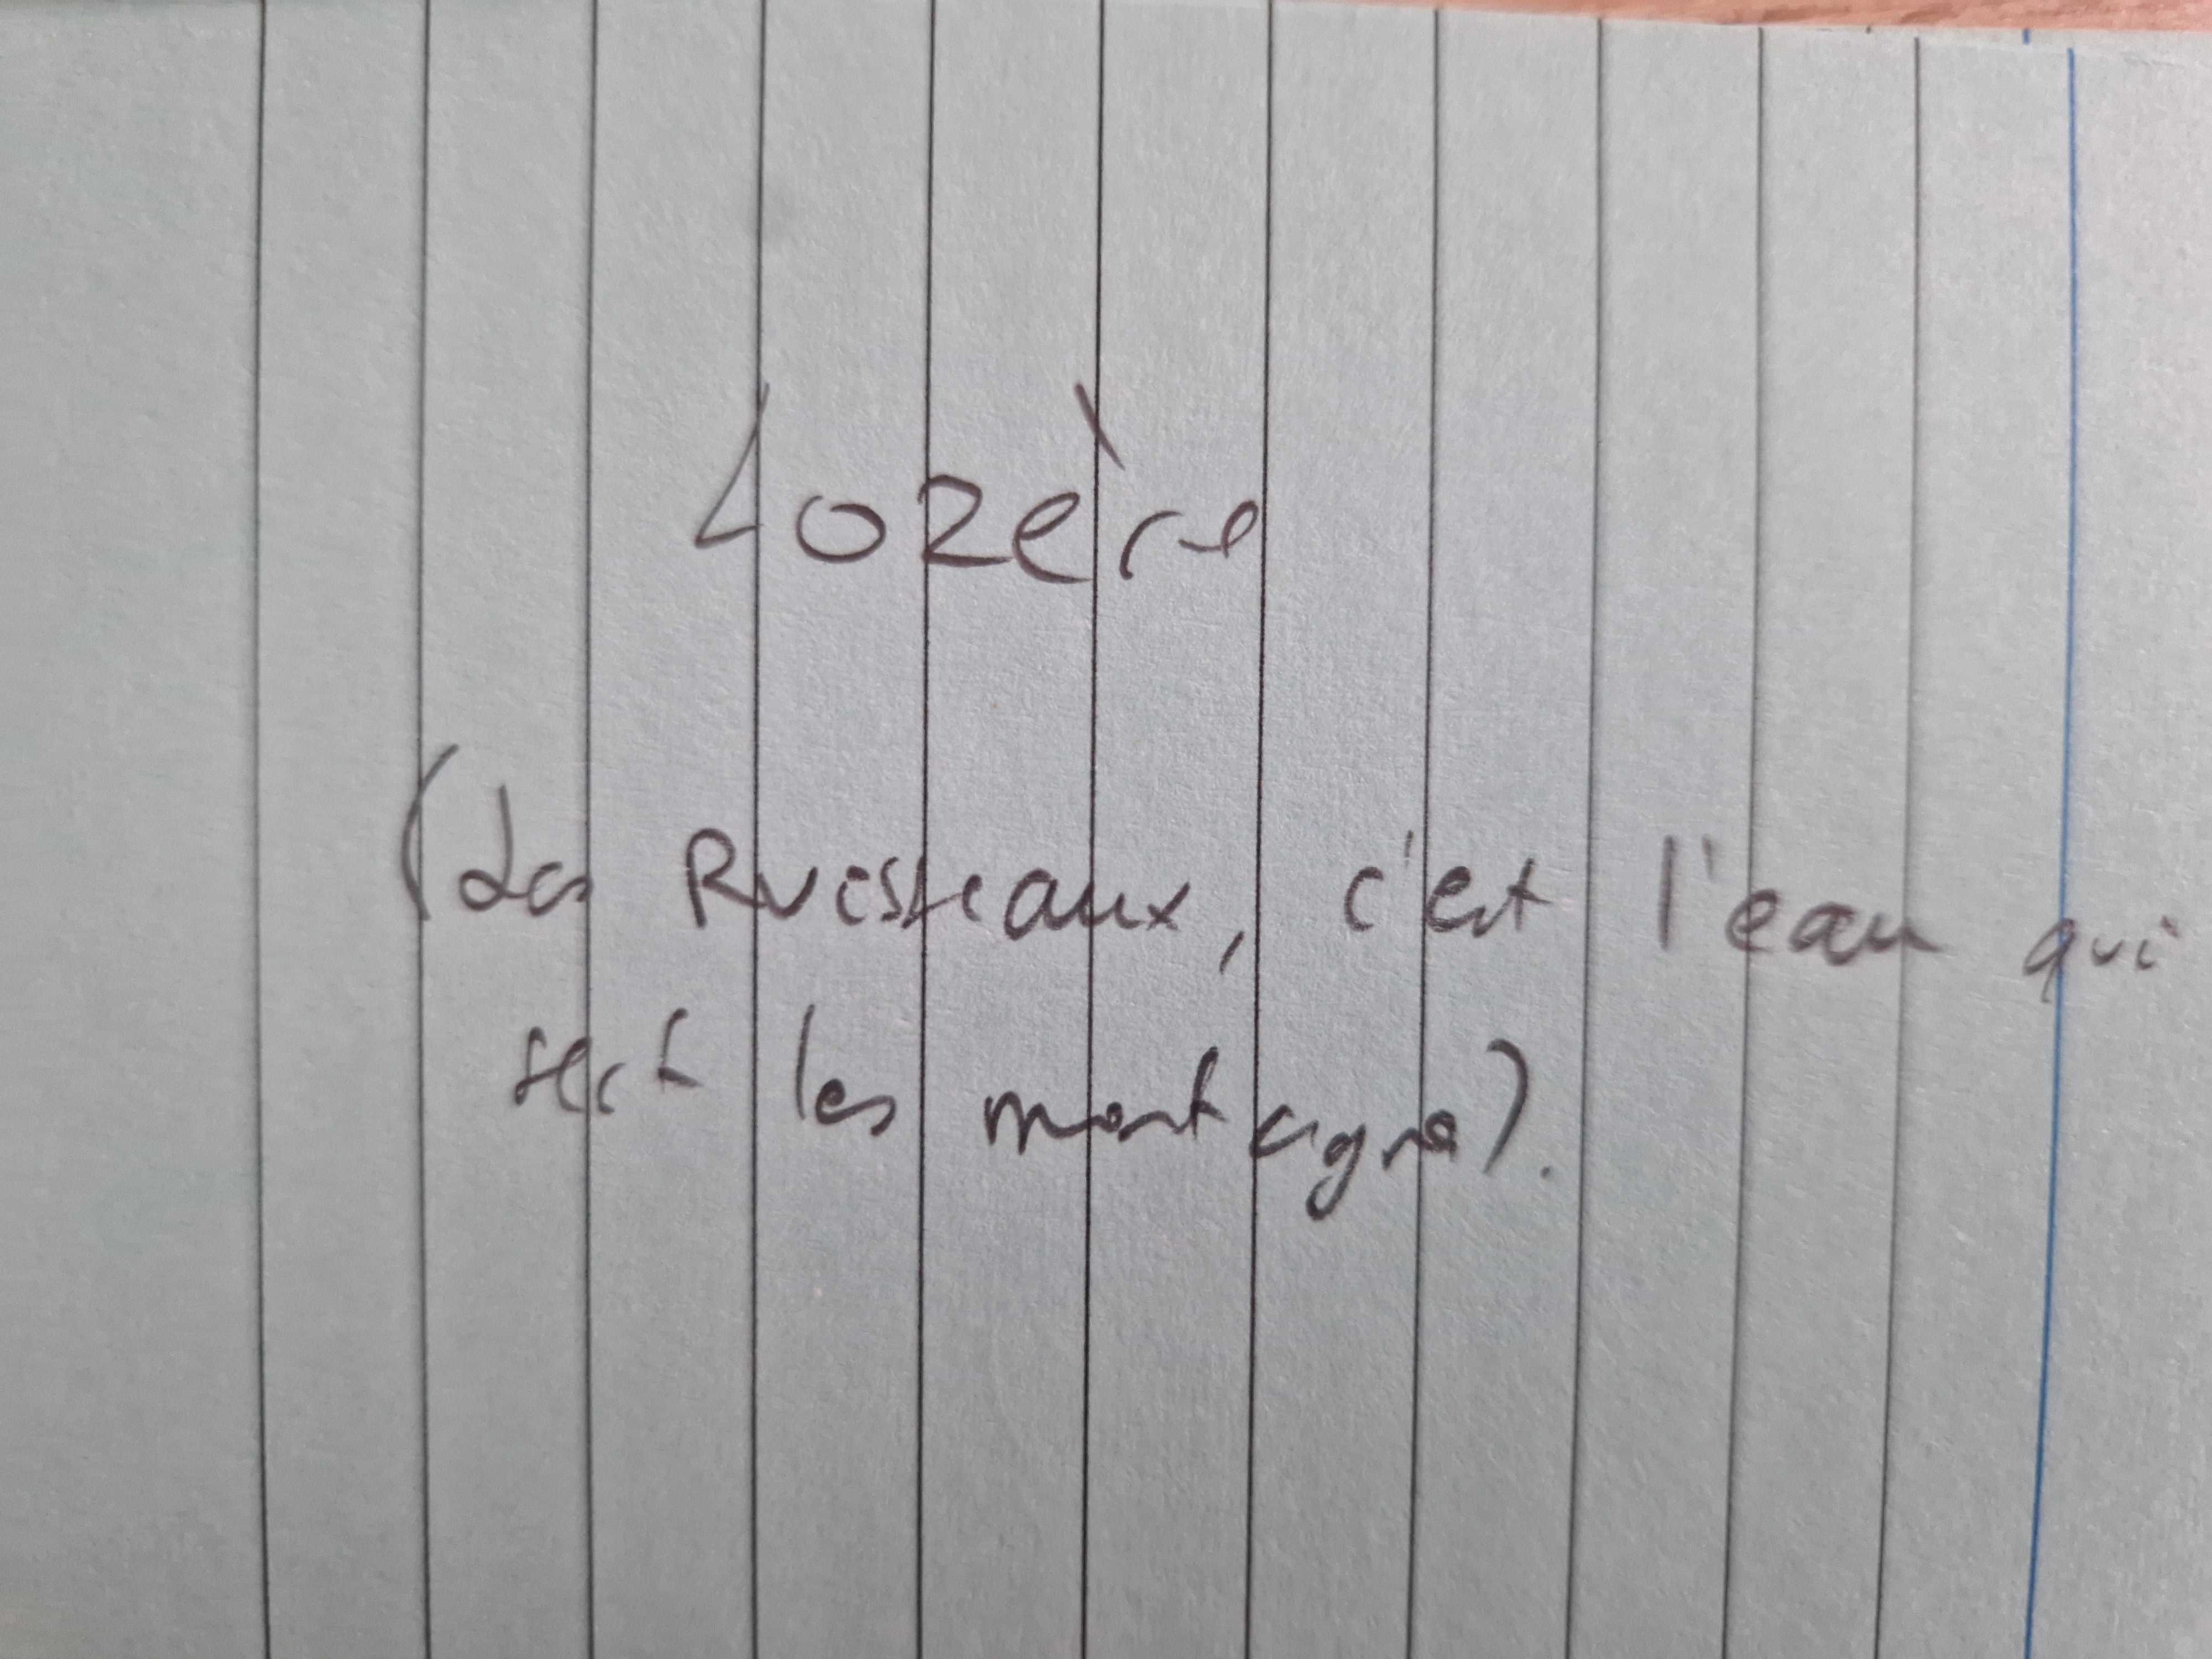 Lozère
(Les Ruisseaux, c'est l'eau qui
sert les montagne).